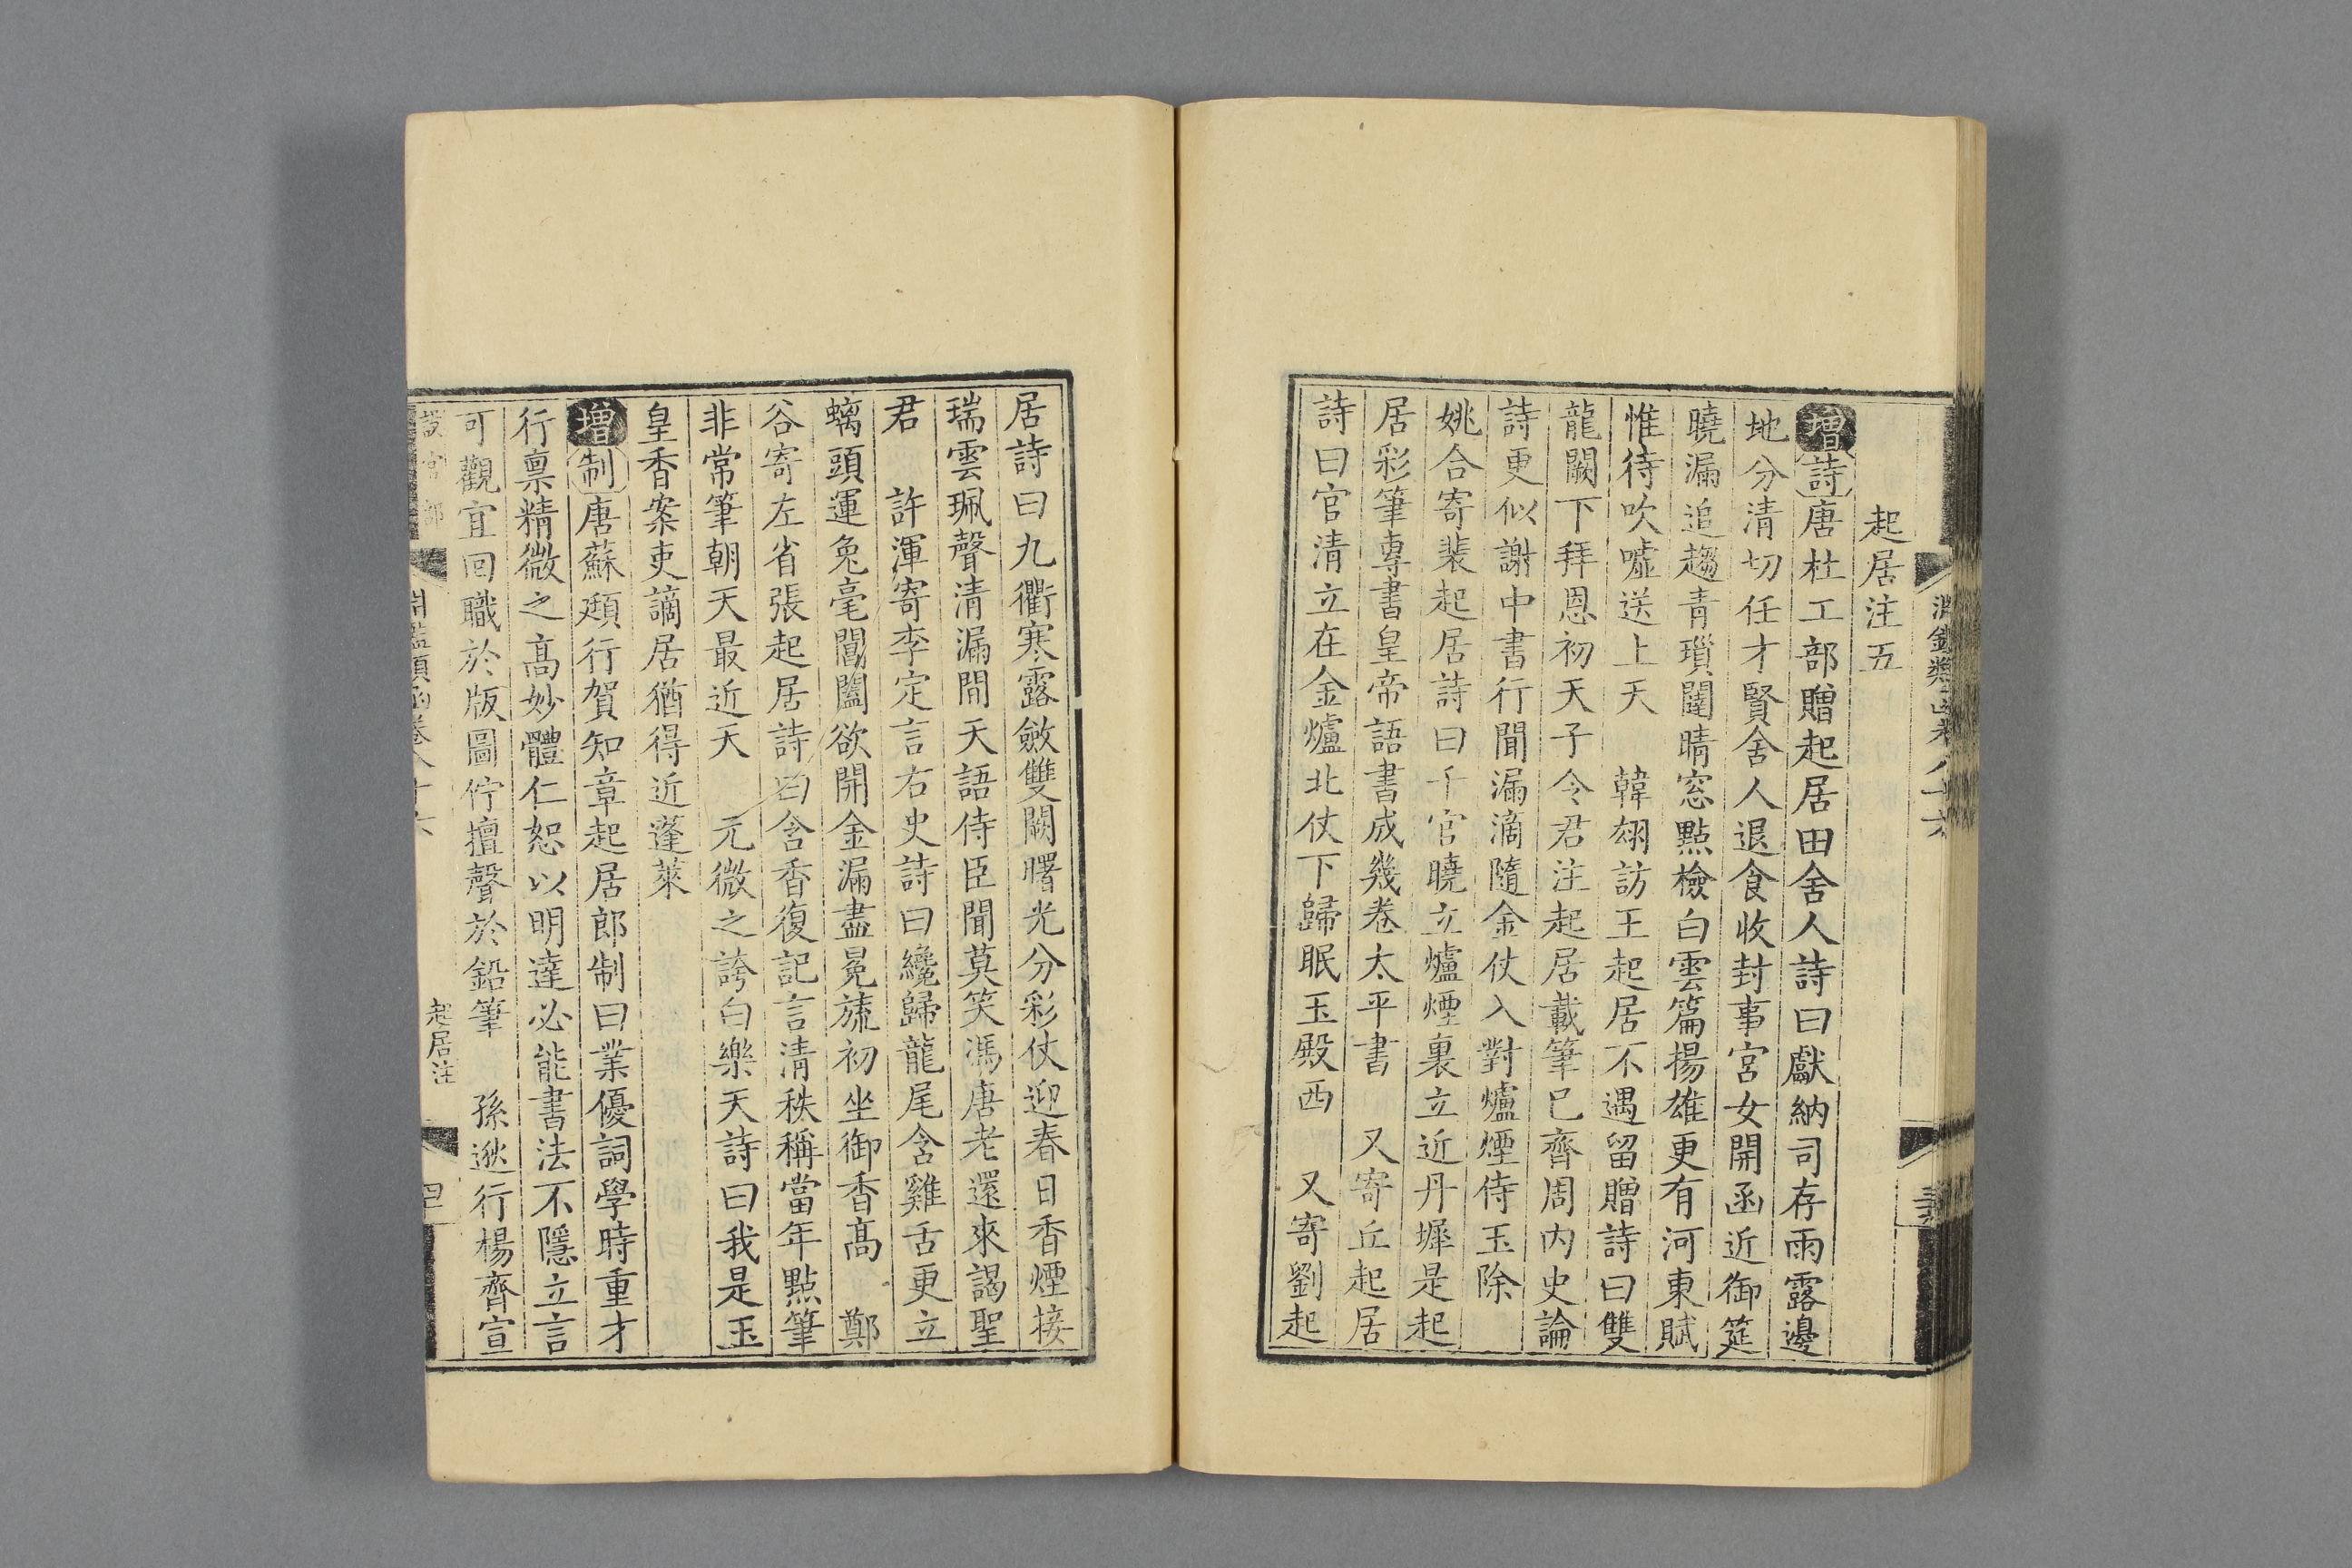 起居注五
增詩唐杜工部贈起居田舍人詩曰獻納司存雨露邊
地分清切任才賢舍人退食收封事宮女開函近御筵
曉漏追趨青瑣闥晴窓點檢白雲篇揚雄更有河東賦
惟待吹噓送上天　韓翃訪王起居不遇留贈詩曰雙
龍闕下拜恩初天子令君注起居載筆已齊周內史論
詩更似謝中書行聞漏滴隨金仗入對爐煙侍玉除
姚合寄裴起居詩曰千官曉立爐煙裏立近丹墀是起
居彩筆專書皇帝語書成幾卷太平書　又寄丘起居
詩曰官清立在金爐北仗下歸眠玉殿西　又寄劉起
居詩曰九衢寒露斂雙闕曙光分彩仗迎春日香煙接
瑞雲珮聲清漏間天語侍臣聞莫笑馮唐老還來謁聖
君　許渾寄李定言右史詩曰纔歸龍尾含雞舌更立
螭頭運兔毫閶闔欲開金漏盡冕旒初坐御香高　鄭
谷寄左省張起居詩曰含香復記言清秩稱當年點筆
非常筆朝天最近天　元微之誇白樂天詩曰我是玉
皇香案吏謫居猶得近蓬萊
增制唐蘇頲行賀知章起居郎制曰業優詞學時重才
行禀精微之高妙體仁恕以明達必能書法不隱立言
可觀宜回職於版圖佇擅聲於鉛筆　孫逖行楊齊宣
設官部　鑑類函卷八十六　起居注